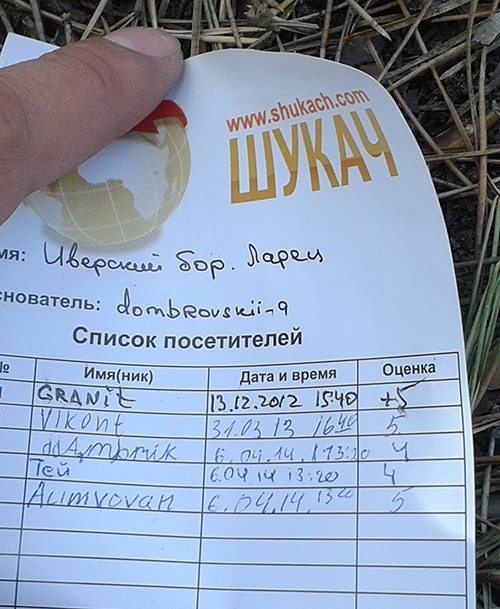 www.shukach.com
ШУКАЧ
мя: Иверский бор. Ларец
снователь: dombrovskii-9
Список посетителей
№ Имя(ник) Дата и время Оценка
GRANit 13.12.2012 15:40 +5
Vikont 31.03 13 16:40 5
6.04.14. 13:20 4
Тей 6.04 14 13:20 4
Alimvovan 6.04.14. 13:20 5